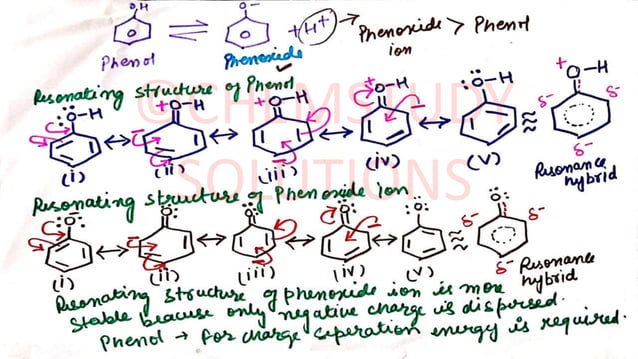 OH O⁻
⇌ + H⁺ → Phenoxide > Phenol
ion
Phenol Phenoxide
Resonating structure of Phenol
@CHEMSTUDY
SOLUTIONS
:Ö–H +Ö–H +Ö–H +Ö–H :Ö–H +O–H
↔ ↔ ↔ ↔ ≈
δ⁻ δ⁻ δ⁻
(i) (ii) (iii) (iv) (v) Resonance
hybrid
Resonating structure of Phenoxide ion
↔ ↔ ↔ ↔ ≈
δ⁻ δ⁻ δ⁻
(i) (ii) (iii) (iv) (v) Resonance
hybrid
Resonating structure of phenoxide ion is more
stable beacuse only negative charge is dispersed.
Phenol → for charge seperation energy is required.